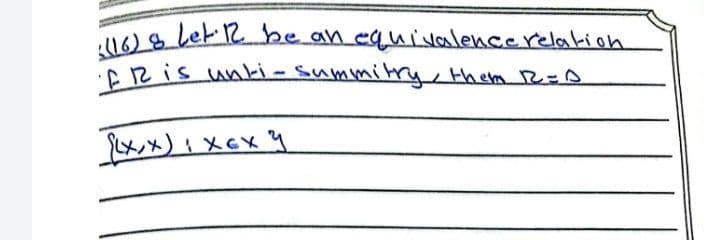 (16) 8 Let R be an equivalence relation
if R is unti-summitry, them R=Δ
{(x,x) : x∈x}